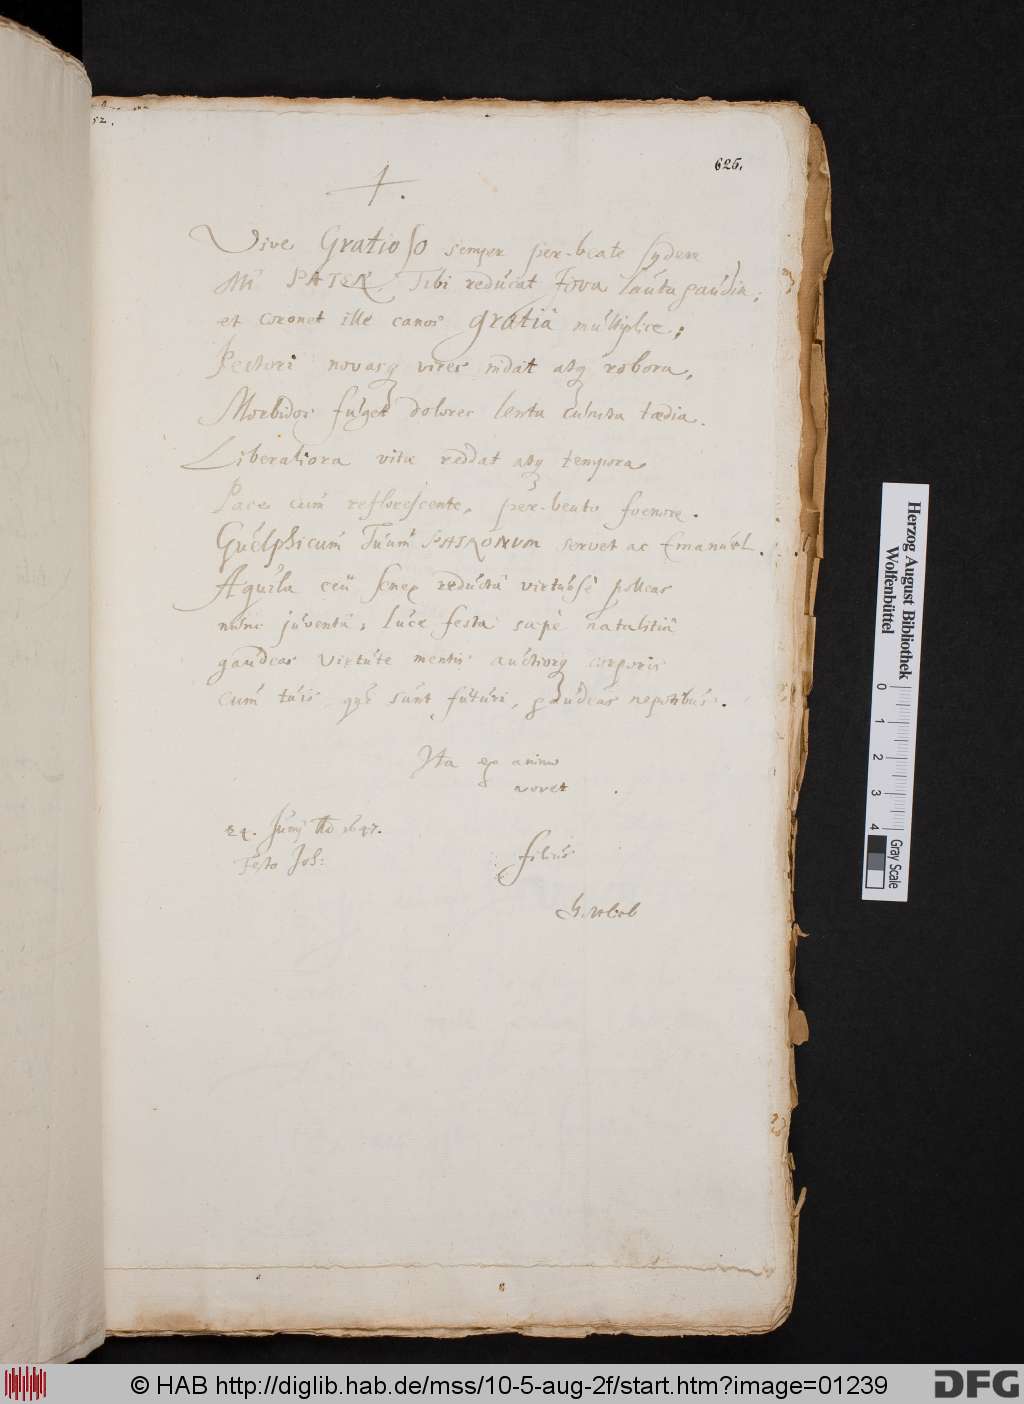 52.
625.
Vive Gratioso semper per-beate sydere
Mi PATER, Tibi reducat Jova lauta gaudia;
et coronet ille canos gratiâ multiplice;
Pectori novasq vires indat atq robora,
Morbidos fuget dolores lenta taedia.
Liberaliora vitae reddat atq tempora
Pace cum reflorescente, per-beato foenore.
Guelphicum Tuum PATRONUM servet ac Emanuel.
Aquila ceu senex reductâ virtuose polleas
nunc juventâ; luce festa saepè natalitiâ
gaudeas virtute mentis auctiorq corporis
cum tuis, qui sunt futuri, gaudeas nepotibus.
Ita ex animo
vovet
24. Junij Ao 1647.
Festo Joh:
filius
Herzog August Bibliothek
Wolfenbüttel
0 1 2 3 4
Gray Scale
© HAB http://diglib.hab.de/mss/10-5-aug-2f/start.htm?image=01239
DFG